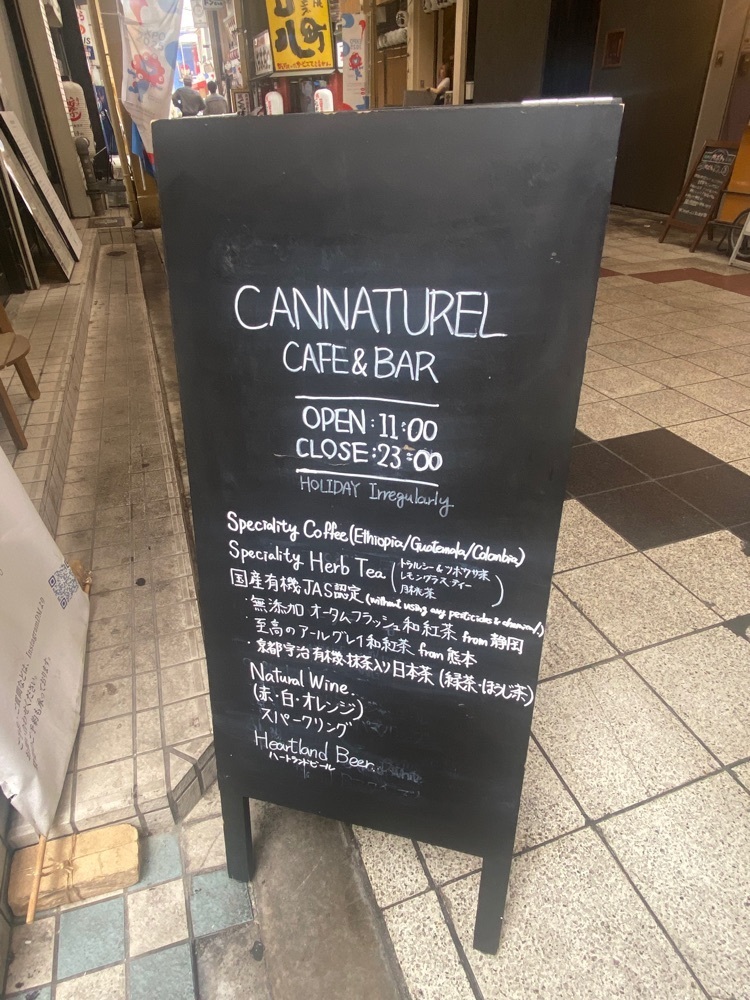 CANNATUREL
CAFE & BAR
OPEN : 11:00
CLOSE : 23:00
HOLIDAY Irregularly
Speciality Coffee (Ethiopia/Guatemala/Colombia)
Speciality Herb Tea (トゥルシー&ツボクサ茶
レモングラスティー
月桃茶)
国産有機JAS認定 (without using any pesticides & chemical)
・無添加 オータムフラッシュ和紅茶 from 静岡
・至高のアールグレイ和紅茶 from 熊本
・京都宇治有機・抹茶入り日本茶 (緑茶・ほうじ茶)
Natural Wine.
(赤・白・オレンジ)
スパークリング
Heartland Beer.
ハートランドビール